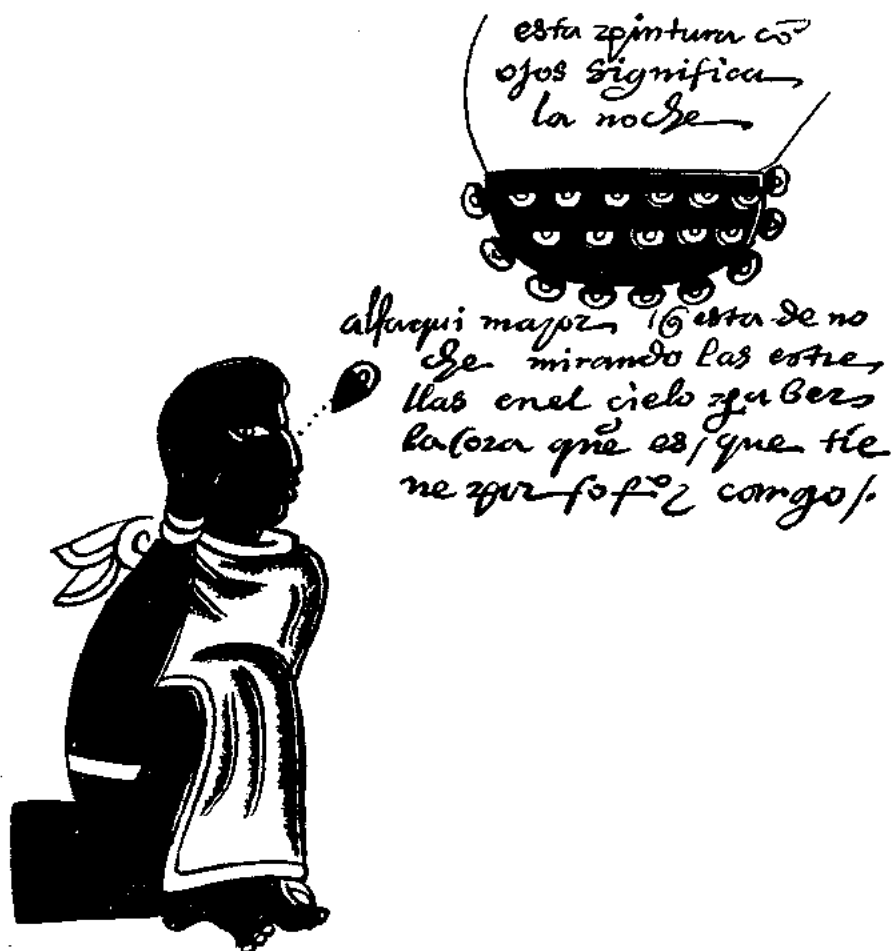 esta pintura cõ
ojos significa
la noche
alfaqui mayor q̃ esta de no
che mirando las estre
llas en el cielo pa ber
la ora que es, que tie
ne por ofº y cargo /.